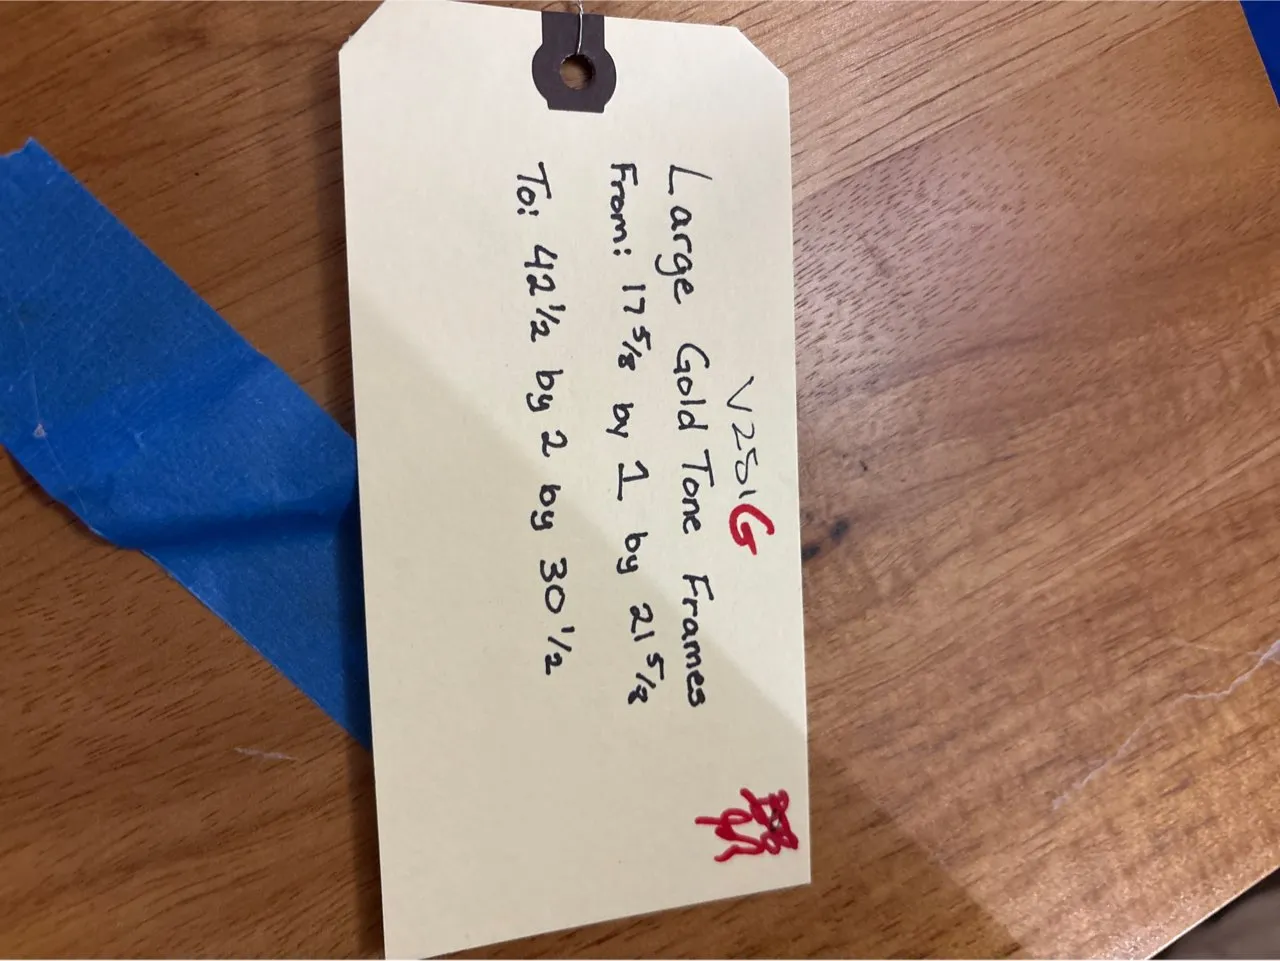 V251G
Large Gold Tone Frames
From: 17 5/8 by 1 by 21 5/8
To: 42 1/2 by 2 by 30 1/2